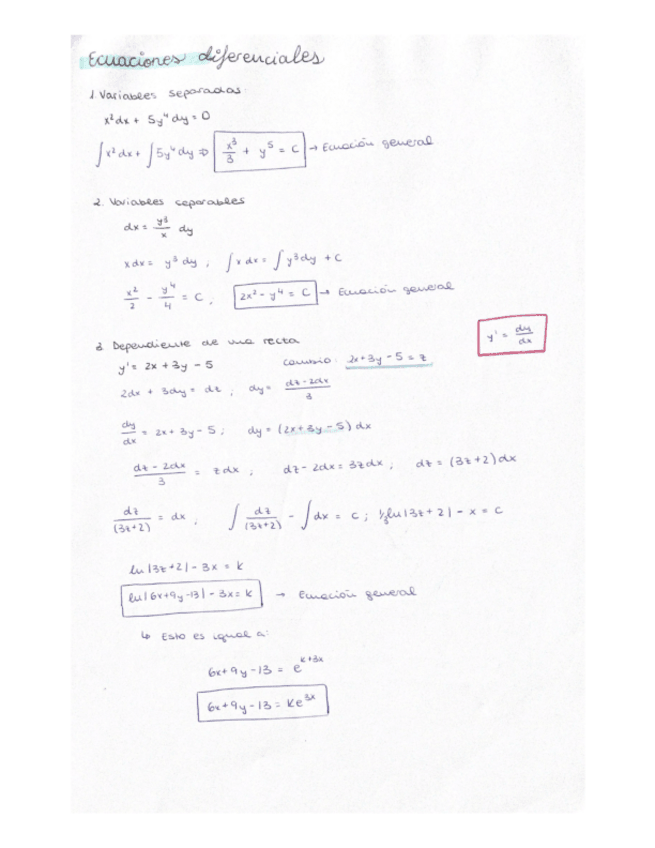 Ecuaciones diferenciales
1. Variables separadas.
x²dx + 5y⁴dy = 0
∫x²dx + ∫5y⁴dy ⇒ x³/3 + y⁵ = C → Ecuación general
2. Variables separables
dx = y³/x dy
xdx = y³ dy ; ∫x dx = ∫y³dy + C
x²/2 - y⁴/4 = C ; 2x² - y⁴ = C → Ecuación general
3. Dependiente de una recta
y' = dy/dx
y' = 2x + 3y - 5 cambio: 2x+3y-5 = z
2dx + 3dy = dz ; dy = dz-2dx/3
dy/dx = 2x + 3y - 5 ; dy = (2x+3y-5) dx
dz - 2dx/3 = zdx ; dz - 2dx = 3zdx ; dz = (3z+2) dx
dz/(3z+2) = dx ; ∫dz/(3z+2) - ∫dx = C ; 1/3 ln|3z+2| - x = C
ln|3z+2| - 3x = K
ln|6x+9y-13| - 3x = K → Ecuación general
↳ Esto es igual a:
6x+9y-13 = e^k+3x
6x+9y-13 = Ke^3x